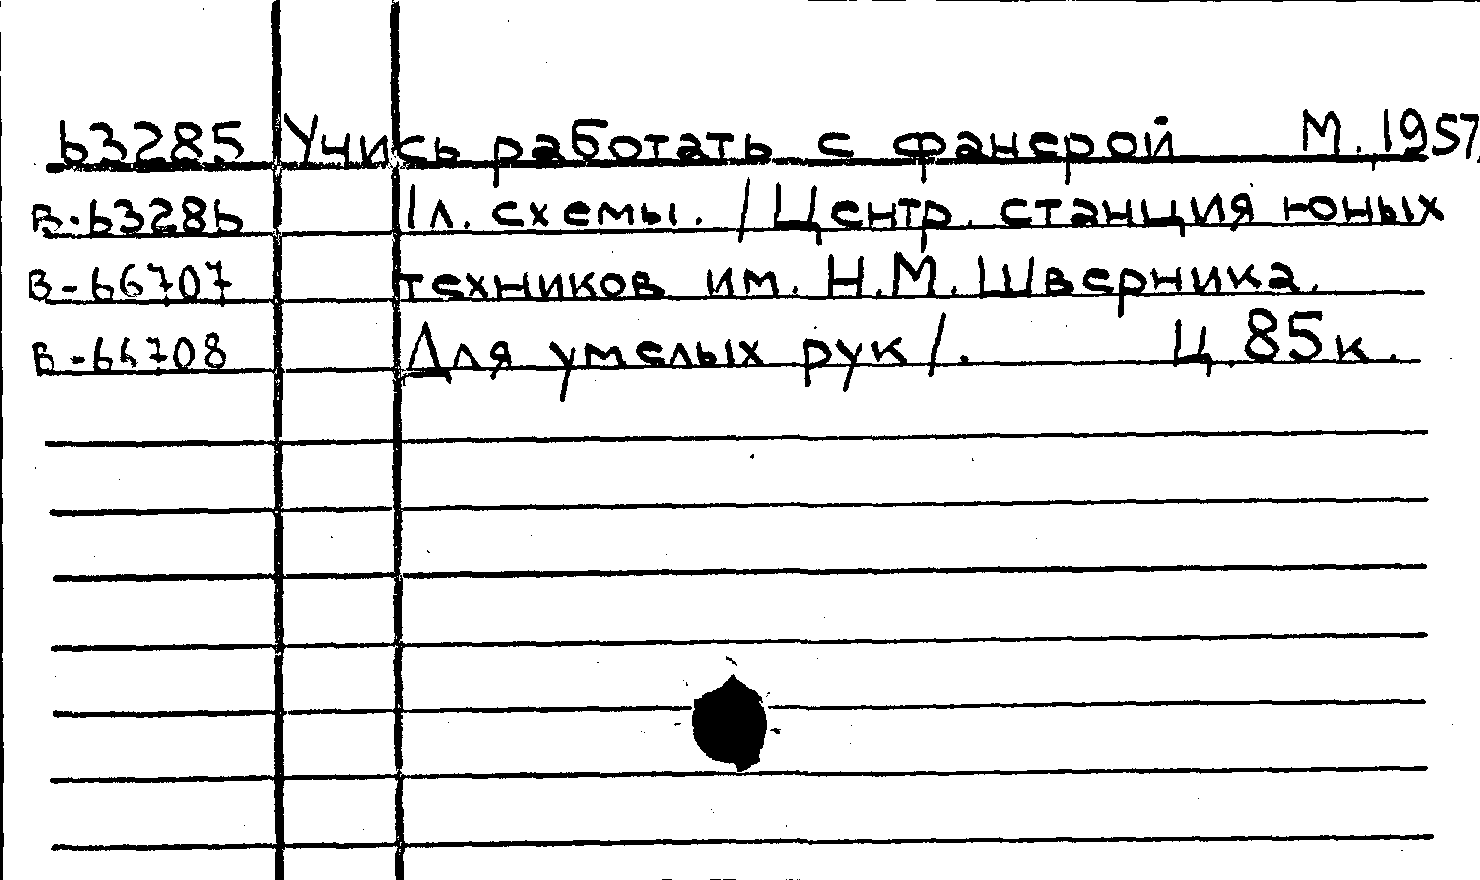 63285 Учись работать с фанерой М. 1957,
В-63286 1л. схемы. /Центр. станция юных
В-66707 техников им. Н.М. Шверника.
В-66708 Для умелых рук/. Ц. 85к.